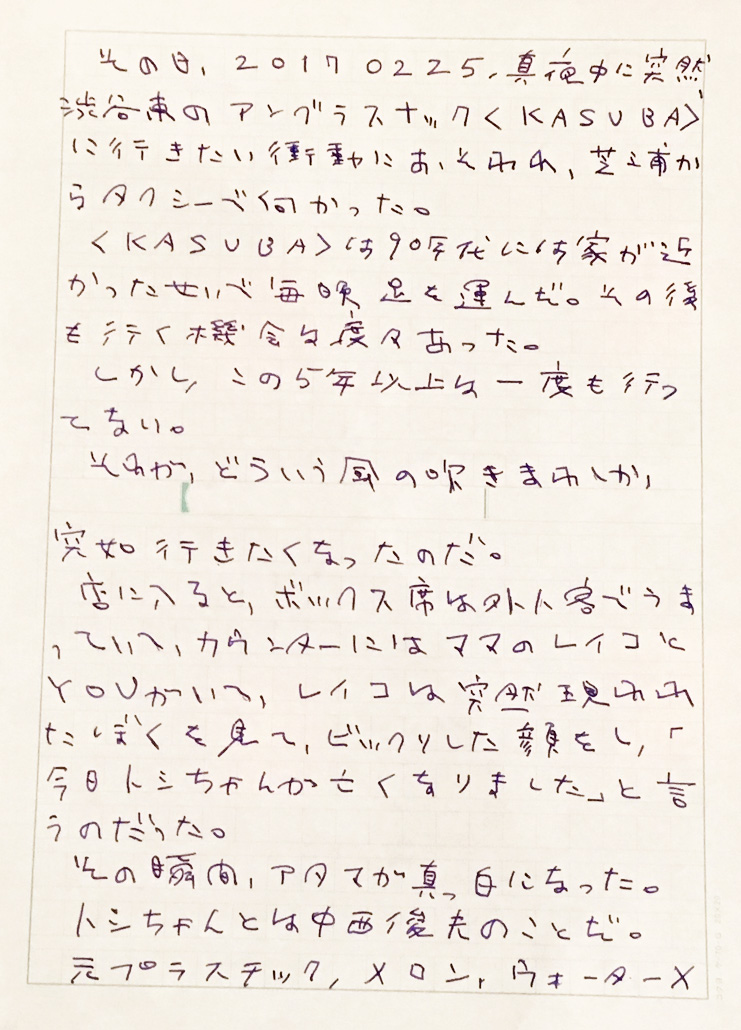 その日、２０１７０２２５、真夜中に突然、
渋谷東のアングラスナック＜ＫＡＳＵＢＡ＞
に行きたい衝動におそわれ、芝浦か
らタクシーで向かった。
＜ＫＡＳＵＢＡ＞は９０年代には家が近
かったせいで毎晩足を運んだ。その後
も行く機会は度々あった。
しかし、この５年以上は一度も行っ
てない。
それが、どういう風の吹きまわしか、
突如行きたくなったのだ。
店に入ると、ボックス席は外人客でうま
っていて、カウンターにはママのレイコに
ＹＯＵがいて、レイコは突然現われ
たぼくを見て、ビックリした顔をし、「
今日トシちゃんが亡くなりました」と言
うのだった。
その瞬間、アタマが真っ白になった。
トシちゃんとは中西俊夫のことだ。
元プラスチック、メロン、ウォーターメ